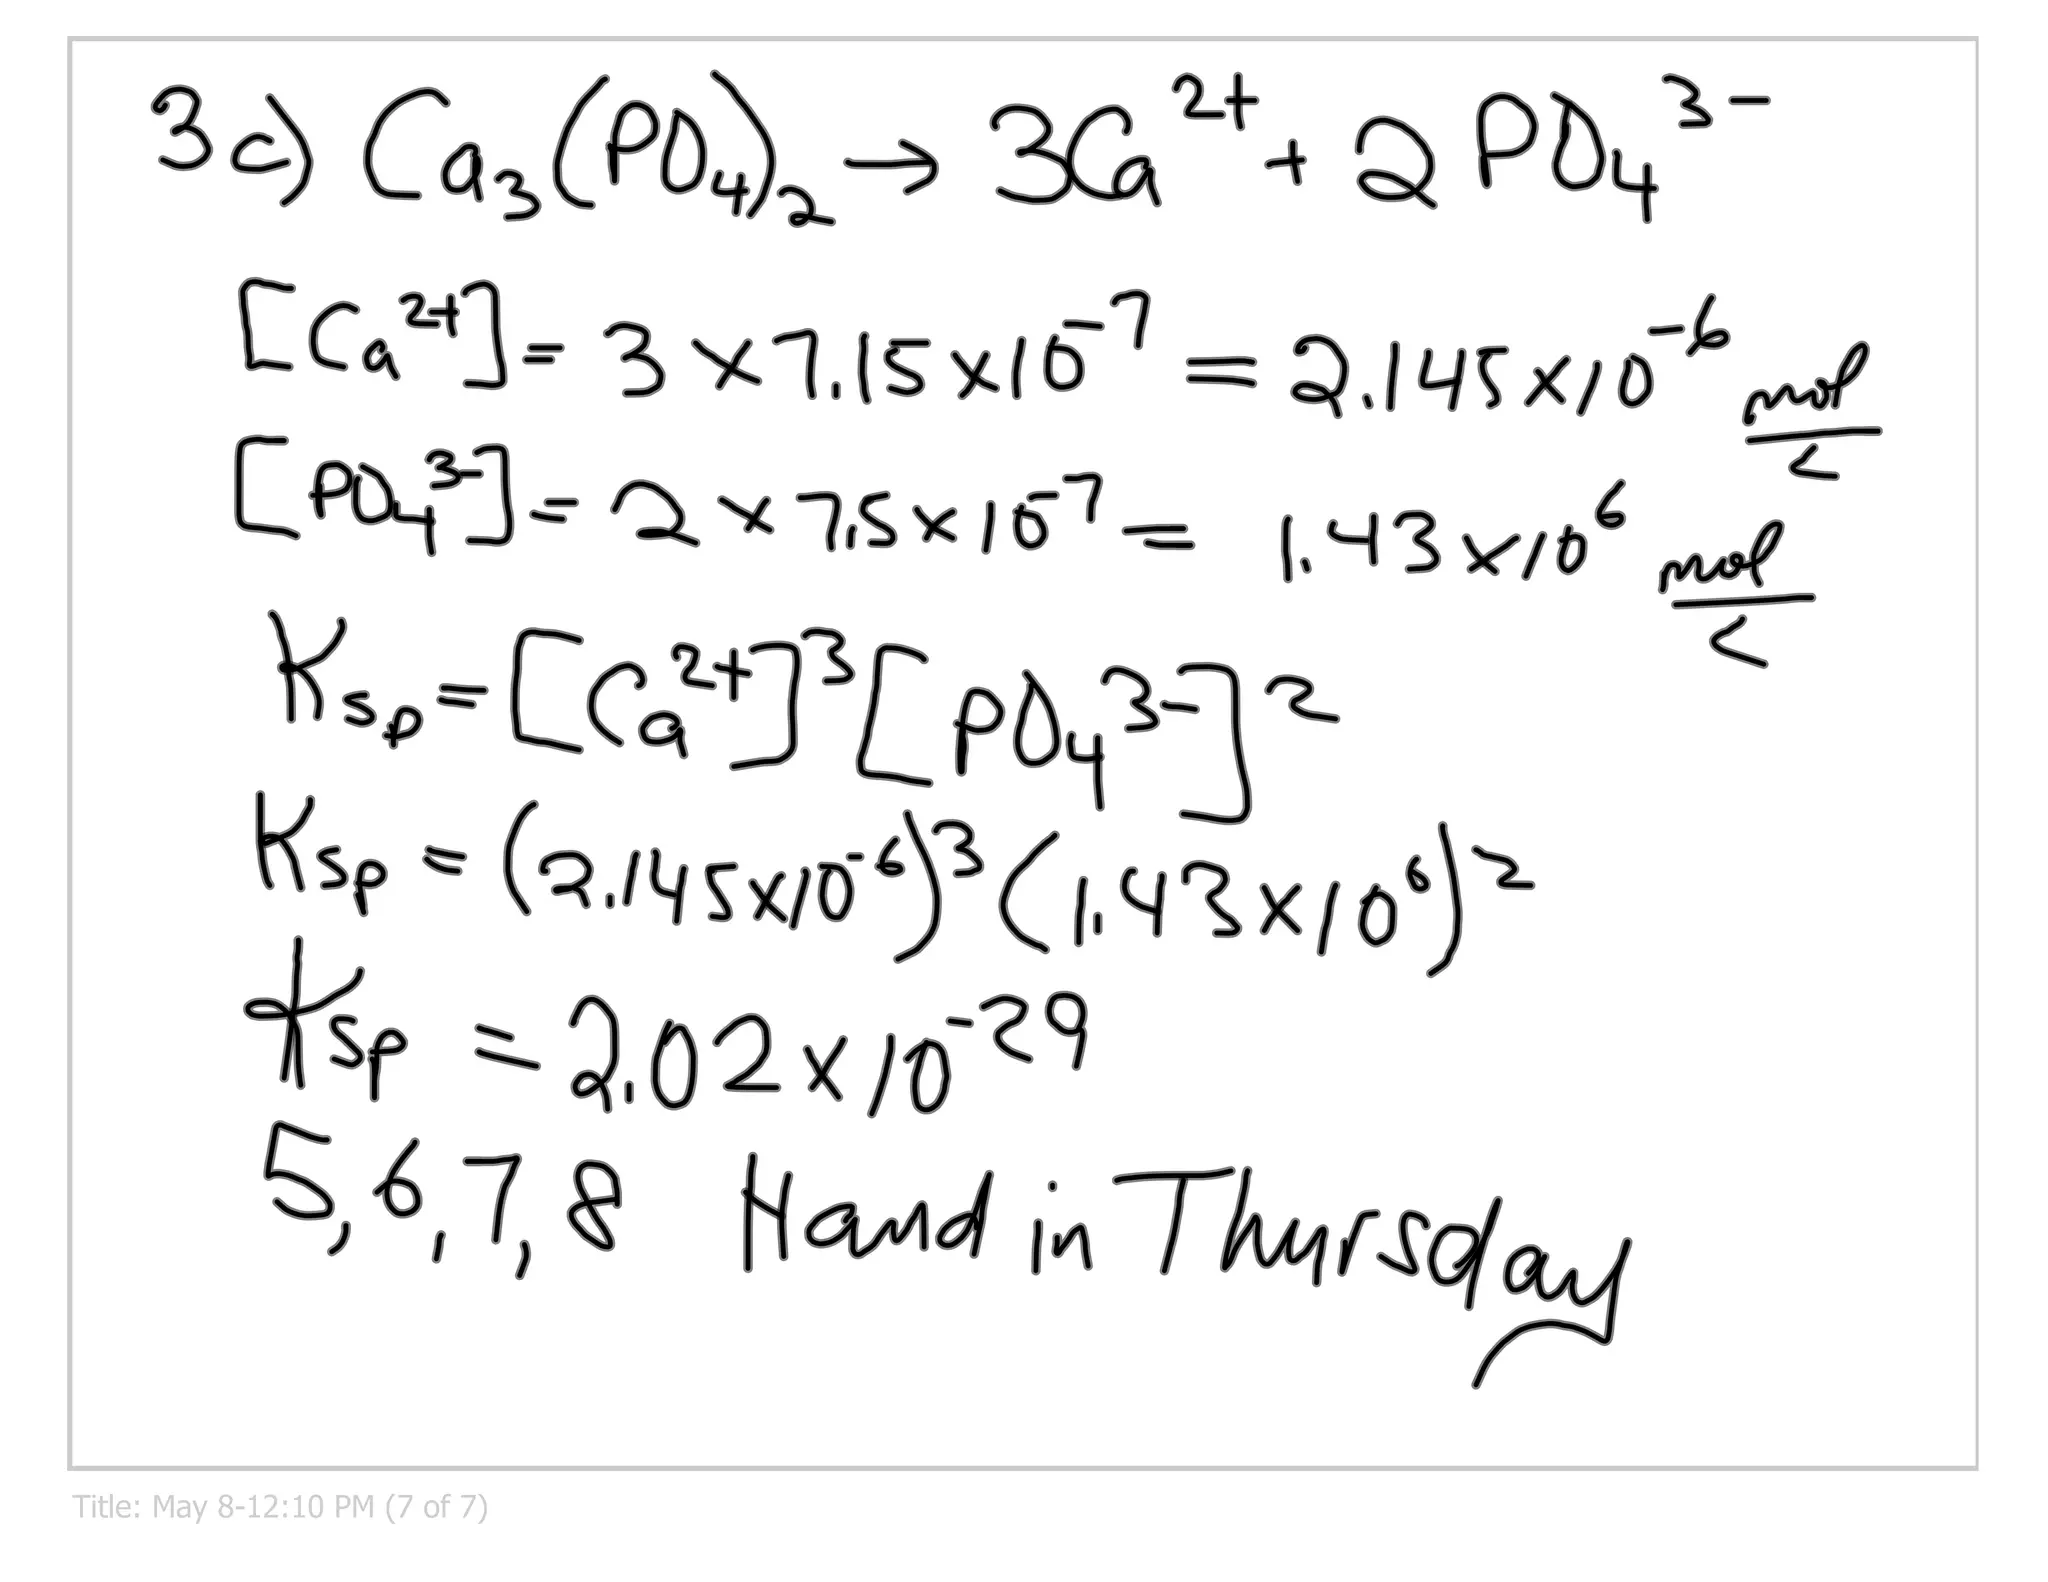 3c) Ca₃(PO₄)₂ → 3Ca²⁺ + 2 PO₄³⁻
[Ca²⁺] = 3 × 7.15 × 10⁻⁷ = 2.145 × 10⁻⁶ mol/L
[PO₄³⁻] = 2 × 7.5 × 10⁻⁷ = 1.43 × 10⁶ mol/L
Ksp = [Ca²⁺]³ [PO₄³⁻]²
Ksp = (2.145 × 10⁻⁶)³ (1.43 × 10⁶)²
Ksp = 2.02 × 10⁻²⁹
5, 6, 7, 8 Hand in Thursday
Title: May 8-12:10 PM (7 of 7)